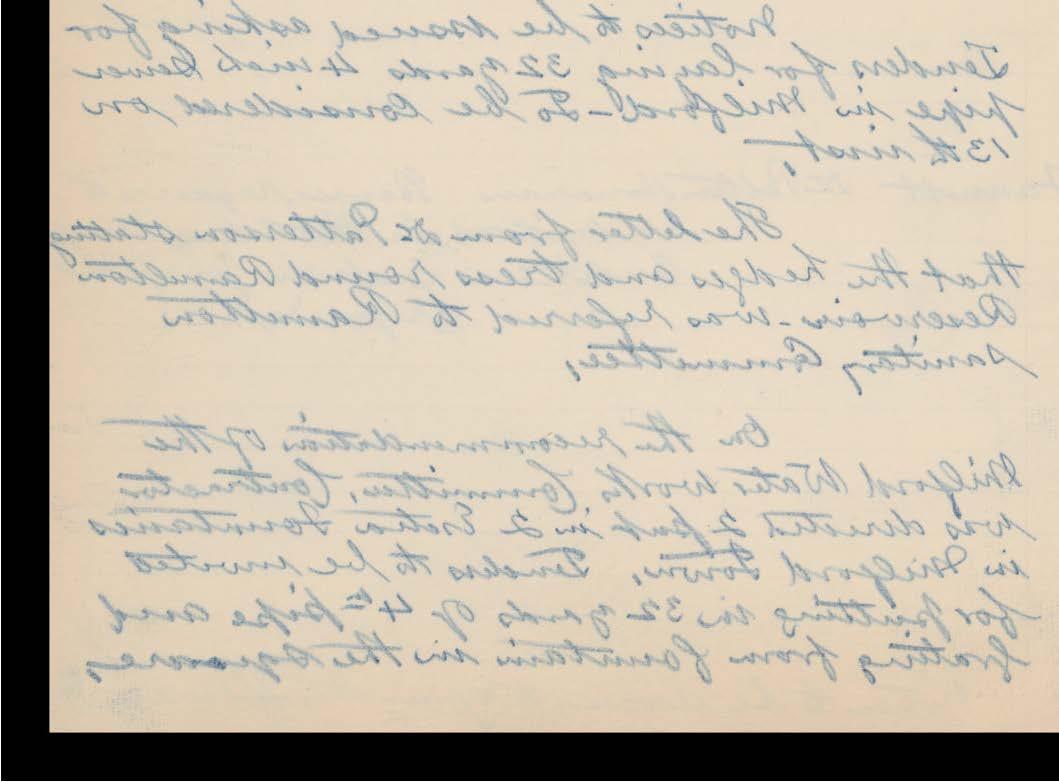 Notices to be issued asking for
Tenders for laying 32 yards 4 inch Sewer
pipe in Milford - To be Considered on
13th inst,
The letter from Dr Patterson stating
that the hedges and tress round Ramelton
Reservoir - was referred to Ramelton
Sanitary Committee,
On the recommendation of the
Milford Water Works Committee, Contractor
was directed 2 put in 2 Extra Fountains
in Milford Town. Tenders to be invited
for putting in 32 yards of 4" pipe and
grating from fountain in the Square,